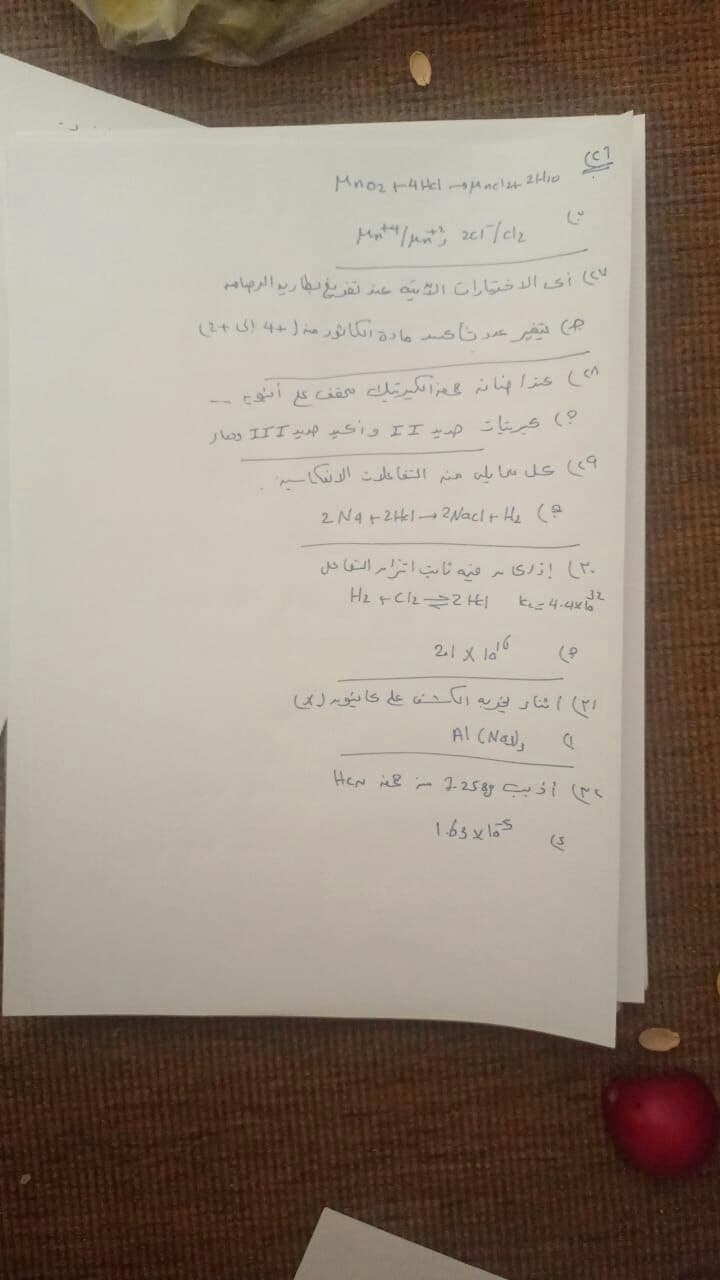 ٢٦)
MnO2 + 4Hcl → Mncl2 + 2H2O
ب) Mn+4/Mn+2, 2Cl-/Cl2
٢٧) أى الاختيارات الآتية عند تفريغ بطارية الرصاصه
ج) يتغير عدد تأكسد مادة الكاثود من (+4 إلى +2)
٢٨) عند اضافة حمض الكبريتيك مخفف على أنبوب ...
ج) كبريتات حديد II و أكسيد حديد III وماء
٢٩) كل مما يلى من التفاعلات الانعكاسية
ج) 2Na + 2Hcl → 2Nacl + H2
٣٠) إذا كانت قيمة ثابت اتزان التفاعل
H2 + Cl2 ⇌ 2Hcl kc = 4.4x10^32
ج) 2.1 x 10^16
٣١) أثناء تجربة الكشف على كاتيون (x)
أ) Al(No3)3
٣٢) أذيب 7.258g من حمض HCN
د) 1.63 x 10^-5